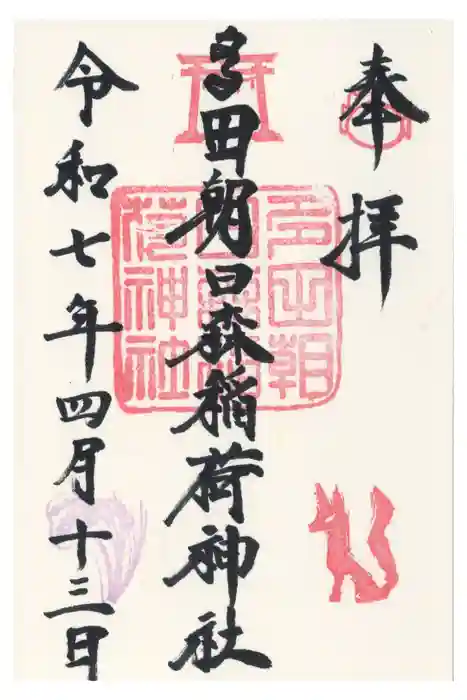 奉拝
多田朝日森稲荷神社
令和七年四月十三日
多田朝
日森稲
荷神社